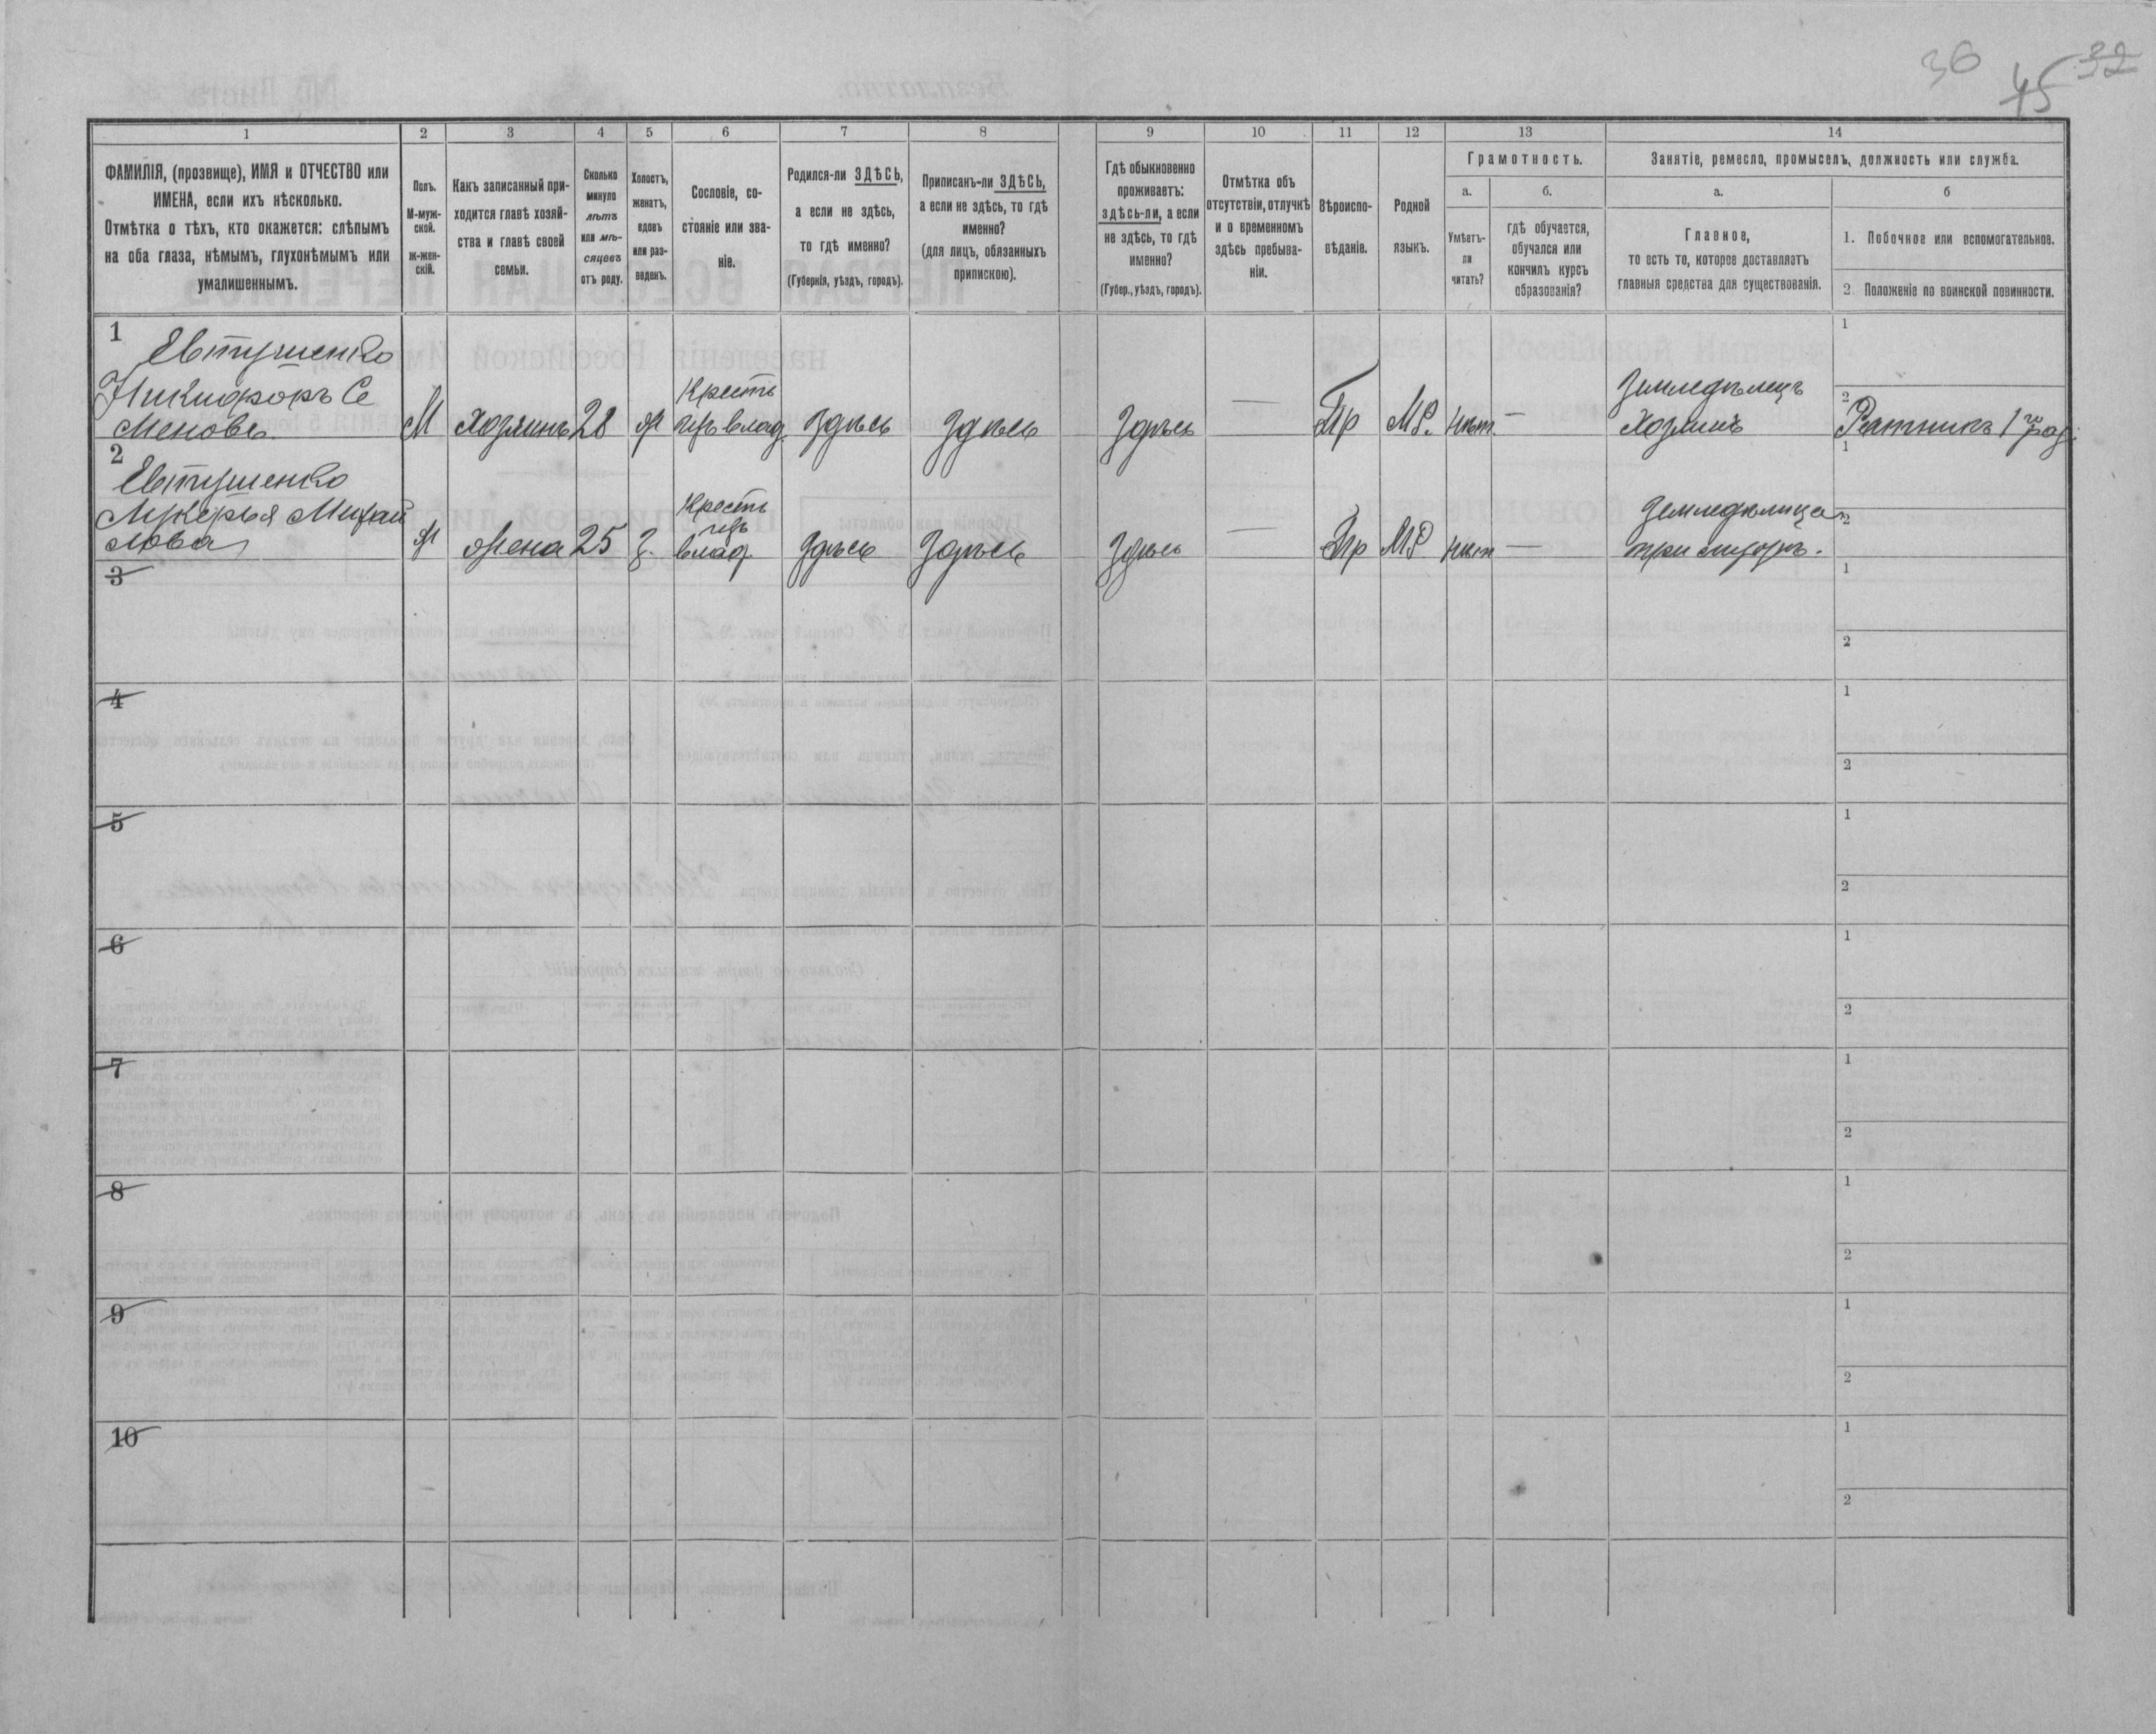 36 45 32
1
2
3
4
5
6
7
8
9
10
11
12
13
14
ФАМИЛІЯ, (прозвище), ИМЯ и ОТЧЕСТВО или
ИМЕНА, если ихъ нѣсколько.
Отмѣтка о тѣхъ, кто окажется: слѣпымъ
на оба глаза, нѣмымъ, глухонѣмымъ или
умалишеннымъ.
Полъ.
М-муж-
ской.
ж-жен-
скій.
Какъ записанный при-
ходится главѣ хозяй-
ства и главѣ своей
семьи.
Сколько
минуло
лѣтъ
или мѣ-
сяцевъ
отъ роду.
Холостъ,
женатъ,
вдовъ
или раз-
веденъ.
Сословіе, со-
стояніе или зва-
ніе.
Родился-ли ЗДѢСЬ,
а если не здѣсь,
то гдѣ именно?
(Губернія, уѣздъ, городъ).
Приписанъ-ли ЗДѢСЬ,
а если не здѣсь, то гдѣ
именно?
(для лицъ, обязанныхъ
припискою).
Гдѣ обыкновенно
проживаетъ:
здѣсь-ли, а если
не здѣсь, то гдѣ
именно?
(Губер., уѣздъ, городъ).
Отмѣтка объ
отсутствіи, отлучкѣ
и о временномъ
здѣсь пребыва-
ніи.
Вѣроиспо-
вѣданіе.
Родной
языкъ.
Грамотность.
а.
б.
Умѣетъ-
ли
читать?
гдѣ обучается,
обучался или
кончилъ курсъ
образованія?
Занятіе, ремесло, промыселъ, должность или служба.
а.
б
Главное,
то есть то, которое доставляетъ
главныя средства для существованія.
1. Побочное или вспомогательное.
2 Положеніе по воинской повинности.
1
Евтушенко
Никифоръ Се
меновъ
М
хозяинъ
28
ж
Кресть
изъ влад
Здѣсь
Здѣсь
Здѣсь
—
Пр
МР.
нѣт
—
Земледѣлецъ
Хозяинъ
1
2
Ратникъ 1 раз.
2
Евтушенко
Лукерья Михай
лова
ж
жена
25
З.
Кресть
изъ
влад
Здѣсь
Здѣсь
Здѣсь
—
Пр
МР
нѣт
—
Земледѣлица
1
2
3
1
2
4
1
2
5
1
2
6
1
2
7
1
2
8
1
2
9
1
2
10
1
2